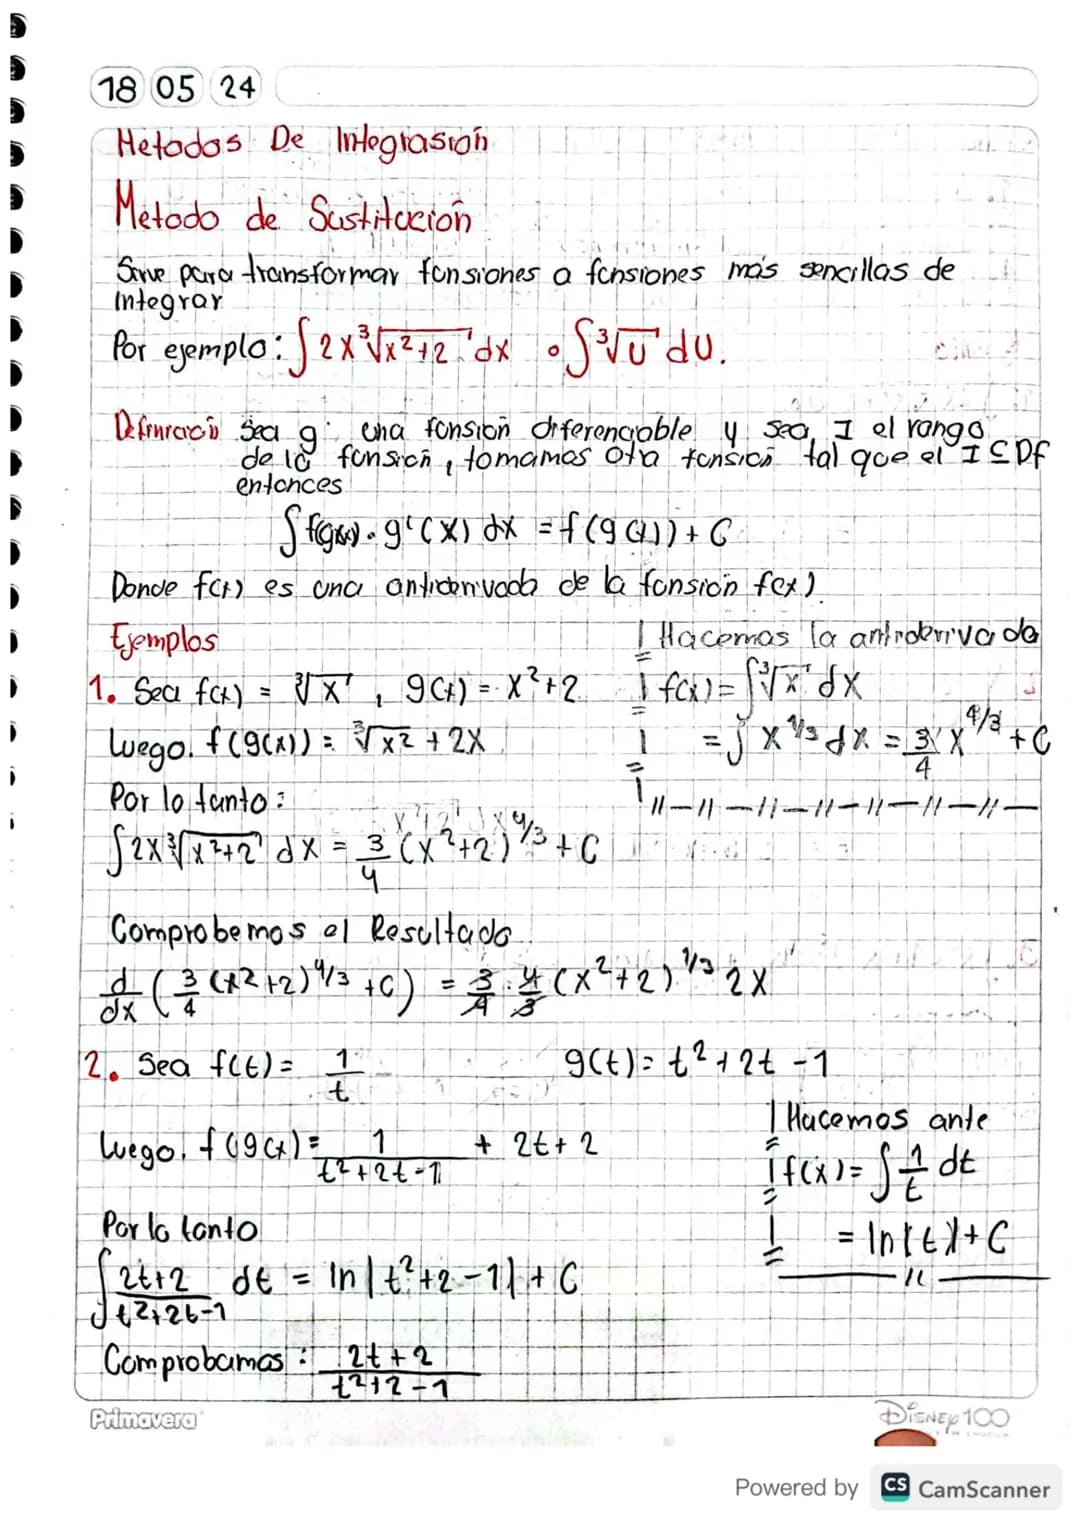 18 05 24
Metodos De Integrasión
Metodo de Sustitución
Sirve para transformar funsiones a funsiones más sencillas de
integrar
Por ejemplo: ∫ 2x ∛x²+2 dx ∘ ∫ ∛U dU.
Definición Sea g una funsión diferenciable y sea I el rango
de la funsión, tomamos otra funsión tal que el I ⊆ Df
entonces
∫ f(g(x)) · g'(x) dx = f(g(x)) + C
Donde f(x) es una antiderivada de la funsión f(x).
Ejemplos
Hacemos la antiderivada
1. Sea f(x) = ∛x , g(x) = x²+2
f(x) = ∫ ∛x dx
Luego. f(g(x)) = ∛x² + 2x
= ∫ x^1/3 dx = 3/4 x^4/3 + C
Por lo tanto:
∫ 2x ∛x²+2 dx = 3/4 (x²+2)^4/3 + C
Comprobemos el Resultado
d/dx (3/4 (x²+2)^4/3 + C) = 3/4 · 4/3 (x²+2)^1/3 2x
2. Sea f(t) = 1/t g(t) = t²+2t-1
Hacemos ante
Luego. f(g(x) = 1/t²+2t-1 + 2t+2
f(x) = ∫ 1/t dt
Por lo tanto
= ln|t|+C
∫ 2t+2/t²+2t-1 dt = ln|t²+2-1| + C
Comprobamos: 2t+2/t²+2-1
Primavera
Disney 100
Powered by CS CamScanner